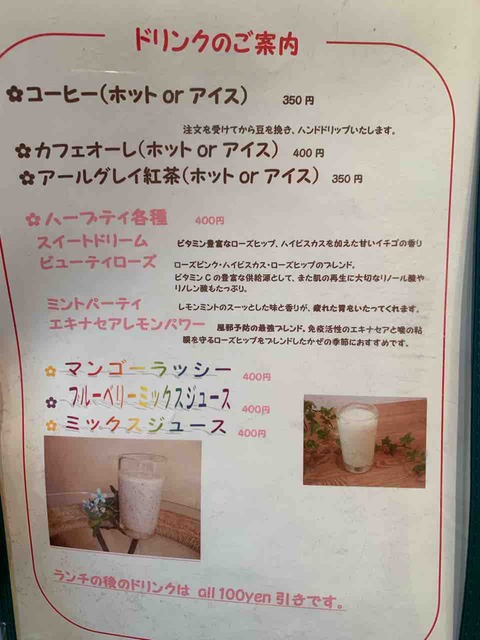 ドリンクのご案内
✿コーヒー(ホット or アイス) 350円
注文を受けてから豆を挽き、ハンドドリップいたします。
✿カフェオーレ(ホット or アイス) 400円
✿アールグレイ紅茶(ホット or アイス) 350円
✿ハーブティ各種 400円
スイートドリーム ビタミン豊富なローズヒップ、ハイビスカスを加えた甘いイチゴの香り
ビューティローズ ローズピンク・ハイビスカス・ローズヒップのブレンド。
ビタミンCの豊富な供給源として、また肌の再生に大切なリノール酸や
リノレン酸もたっぷり。
ミントパーティ レモンミントのスーッとした味と香りが、疲れた胃をいたってくれます。
エキナセアレモンパワー 風邪予防の最強ブレンド。免疫活性のエキナセアと喉の粘
膜を守るローズヒップをブレンドしたかぜの季節におすすめです。
✿マンゴーラッシー 400円
✿ブルーベリーミックスジュース 400円
✿ミックスジュース 400円
ランチの後のドリンクは all 100yen 引きです。